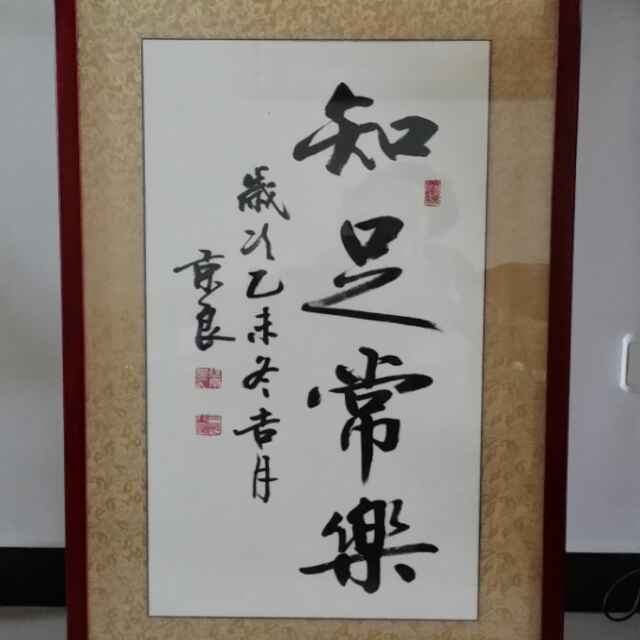 知足常樂
歲次乙未冬吉月
京良